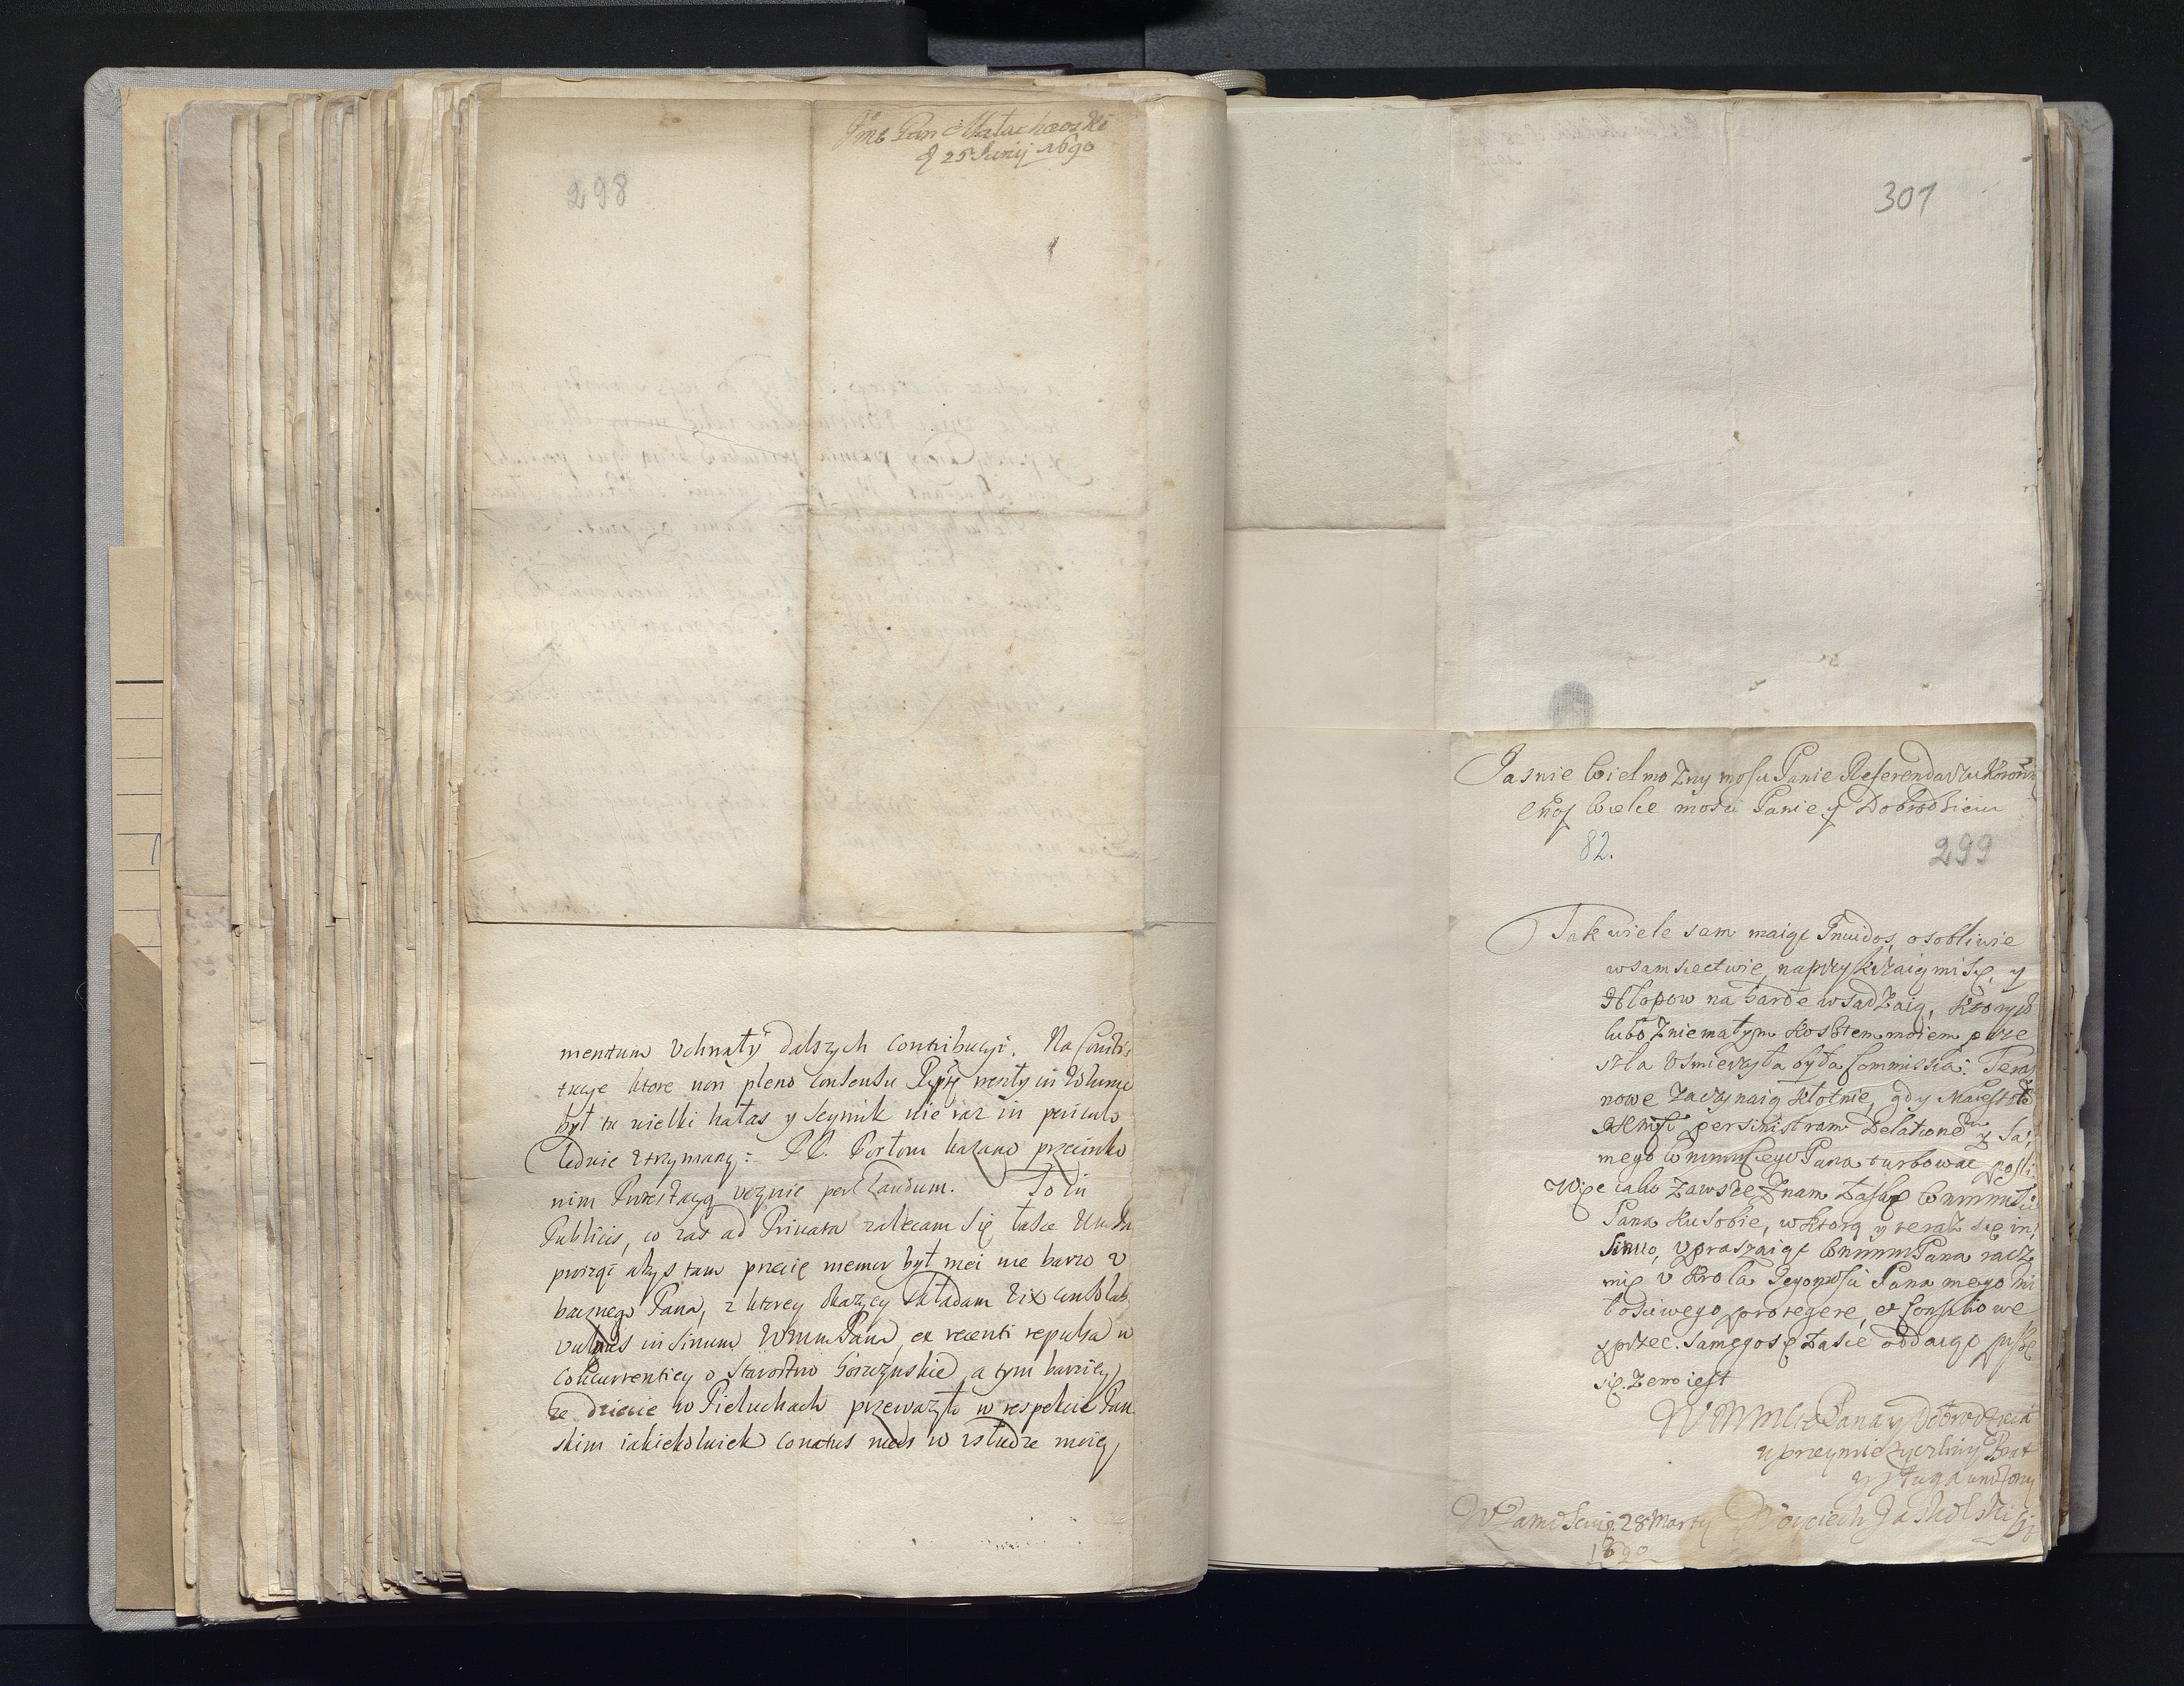 Jmć Pan Małachowski
d 25 Junij 1690
298
mentum Uchwały dalszych contribucyi. Na Consti:
tucye ktore non pleno consensu Rptę weszły in Volumen
był tu wielki hałas y Seymik nie raz in periculo
ledwie utrzymany: PP. Posłom kazano przeciwko
nim Protestacyą uczynić per Laudum. To in
Publicis, co zaś ad Privata zalecam się łasce
abyś tam przecię memor był mei nie barzo u
bocznego Pana, z ktorey okazyey składam vix consolab.
vulnus in sinum WmmPana, ex recenti repulsa w
concurrentiey o Starostwo a tym barziey
że dziecie w Pieluchach przeważyło w respekcie Pan
skim iakiekolwiek conatus meos w usłudze moiey,
301
Jasnie Wielmozny mosci Panie Referendarzu Koronny
moy Wielce mosci Panie y Dobrodzieiu
82.
299
Tak wiele sam maiąc Invidos, osobliwie
w samsiectwie, naprzykrzaią mi się, y
Chłopow na harde wsadzaią, ktorych
lubo z niemałym kosztem moiem prze
szła usmierzyła była Commissia: Teraz
nowe zaczynaią kłotnie, gdy Maiestat
per sinistram Delationem y Sa:
mego Wmmsciego Pana turbować
Więc iako zawsze znam łaskę Wmmmsci
Pana ku sobie, w ktorą y teraz się in,
sinuo, upraszaiąc WmmmPana racz
mię u Krola Jegomosci Pana mego mi
łosciwego protegere, et Consilio we
sprzec. Samego się łasce oddaiąc piszę
się. Zem iest
WMMMsci Pana y Dobrodzieia
uprzeymie zyczliwy Brat
y sługa unizony
W Zamosciu 28 Marty Woyciech Jaskolski
1690